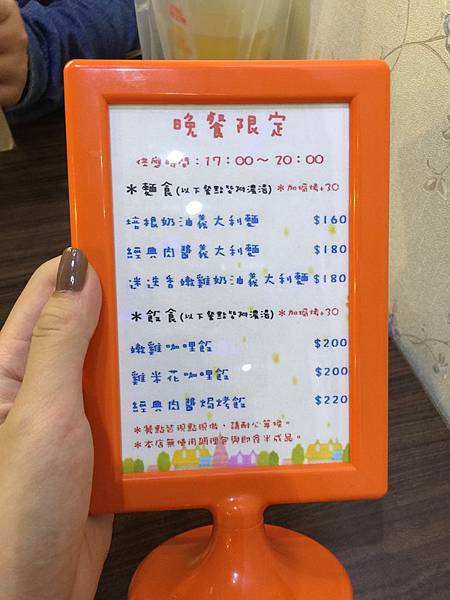 晚餐限定
供應時間：17：00～20：00
＊麵食(以下餐點皆附濃湯)＊加焗烤+30
培根奶油義大利麵 $160
經典肉醬義大利麵 $180
迷迭香嫩雞奶油義大利麵 $180
＊飯食(以下餐點皆附濃湯)＊加焗烤+30
嫩雞咖哩飯 $200
雞米花咖哩飯 $200
經典肉醬焗烤飯 $220
＊餐點皆現點現做，請耐心等候。
＊本店無使用調理包與即食半成品。